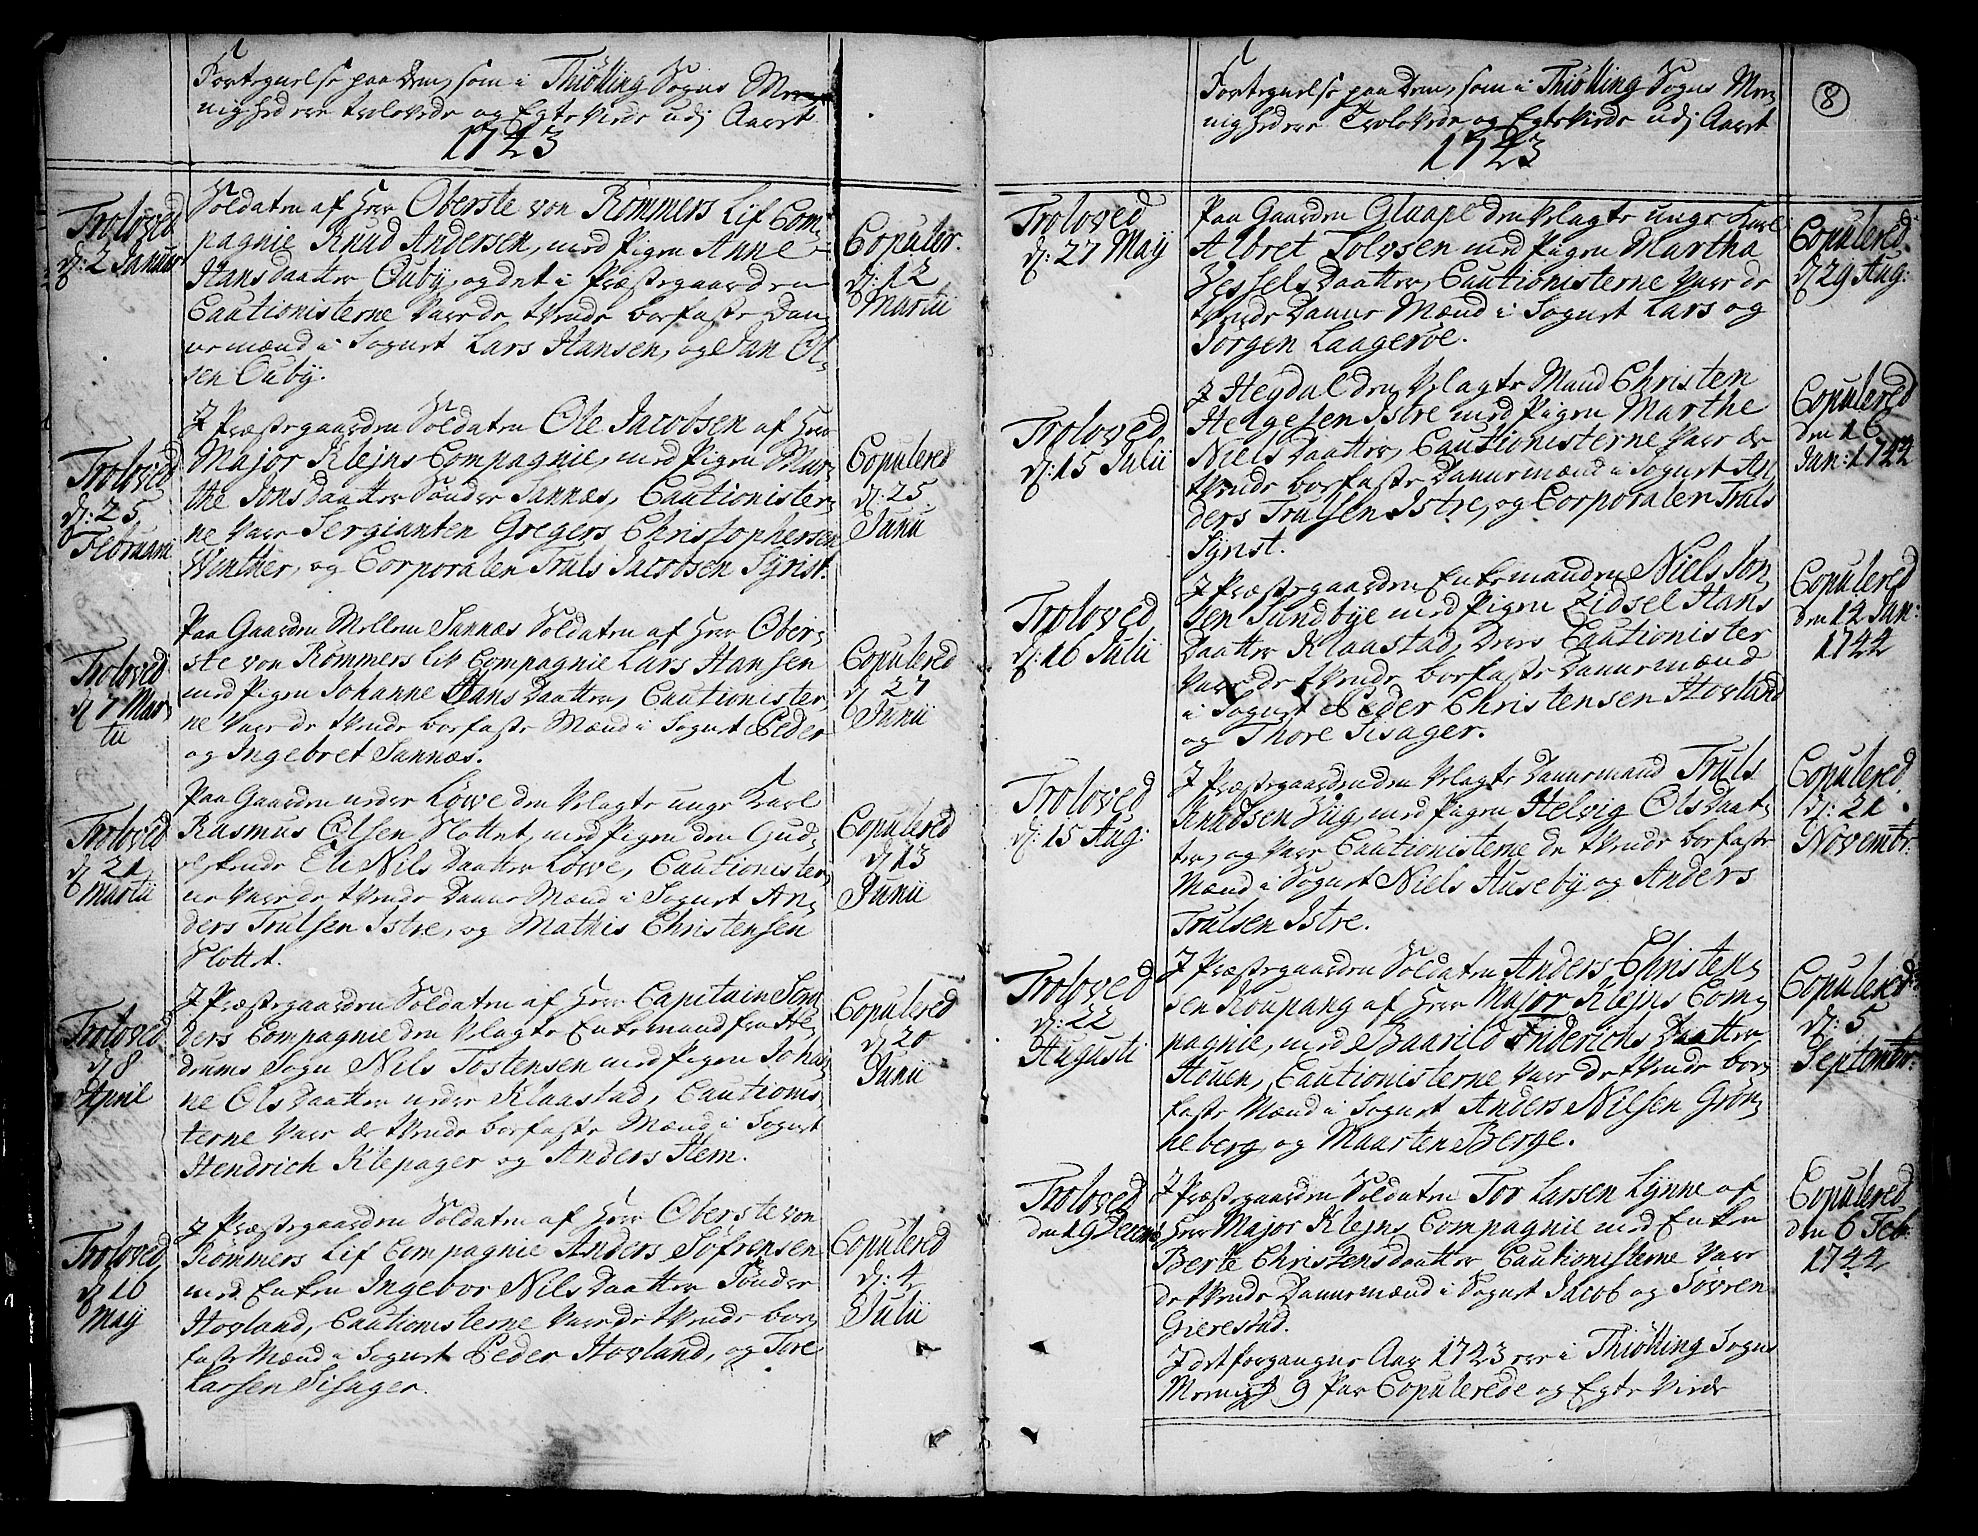 Fortegnelse paa dem, som i Thiölling Sogns Me-
nighed ere trolovede og Egteviede udj Aaret
1743
Troloved
d: 2 Januar
Soldaten af Herr Oberste von Römmers Lif Com-
pagnie Knud Andersen, med Pigen Anne
Hans Daatter Ouby, og det i Præstegaarden
Cautionisterne vare de tvende boefaste Dan-
nemænd i Sognet Lars Hansen, og Jan Ol-
sen Ouby.
Copuler.
d: 12
Martii
Troloved
d: 25
Februarii
I Præstegaarden Soldaten Ole Jacobsen af Herr
Major Klejns Compagnie, med Pigen Mar-
the Jons Daatter Sönder Sannæs, Cautionister-
ne vare Sergianten Gregers Christophersen
Winther, og Corporalen Truls Jacobsen Syrist.
Copulered
d: 25
Junii
Troloved
d 7 Mar-
tii
Paa Gaarden Mellem Sannæs Soldaten af Herr Ober-
ste von Römmers Lif Compagnie Lars Hansen
med Pigen Johanne Hans Daatter, Cautionister-
ne vare de tvende boefaste Mænd i Sognet Peder
og Ingebret Sannæs.
Copulered
d 27
Junii
Troloved
d 21
Martii
Paa Gaarden nedre Löwe den Velagte unge Karl
Rasmus Olsen Slottet, med Pigen den Gud-
elskende Eli Nils Daatter Löwe, Cautionister-
ne vare de tvende Danne Mænd i Sognet An-
ders Trulsen Istre, og Mathis Christensen
Slottet.
Copulered
d 13
Junii
Troloved
d 8
April
I Præstegaarden Soldaten af Herr Capitain
ders Compagnie den Velagte Enkemand fra He-
drums Sogn Nils Tostensen med Pigen Johan-
ne Ols Daatter nedre Klaastad, Cautionis-
terne vare de tvende boefaste Mænd i Sognet
Hendrich Klepager og Anders Hem.
Copulered
d 20
Junii
Troloved
d 16
Maij
I Præstegaarden Soldaten af Herr Oberste von
Römmers Lif Compagnie Anders Söfrensen
med Enken Ingebor Nils Daatter Sönder
Hovland, Cautionisterne vare de tvende boe-
faste Mænd i Sognet Peder Hovland, og Tore
Larsen Sisager.
Copulered
d: 4
Julii
8
Fortegnelse paa dem, som i Thiölling Sogns Me-
nighed ere Trolovede og Egteviede udj Aaret
1743
Troloved
d: 27 Maij
Paa Gaarden Gluape den Velagte unge Karl
Albret Tolvsen med Pigen Martha
Vessels Daatter, Cautionisterne vare de
tvende Danne Mænd i Sognet Lars og
Jörgen Laageröe.
Copulered
d 29 Aug:
Troloved
d: 15 Julii
I Heydal den Velagte Mand Christen
Helgesen Istre med Pigen Marthe
Niels Daatter, Cautionisterne vare de
tvende boefaste Dannemænd i Sognet An-
ders Trulsen Istre, og Corporalen Truls
Syrist.
Copulered
den 16
Jan: 1744
Troloved
d: 16 Julii
I Præstegaarden Enkemanden Niels Jon-
sen Sundbye med Pigen Zidsel Hans
Daatter Klaastad, Deres Cautionister
vare de tvende boefaste Dannemænd
i Sognet Peder Christensen Hovland
og Thore Sisager.
Copulered
den 12 Jan:
1744
Troloved
d: 15 Aug:
I Præstegaarden den Velagte Dannemand Truls
Knudsen Züg, med Pigen Helvig Ols Daat-
ter, og vare Cautionisterne de tvende boefaste
Mænd i Sognet Niels Huseby og Anders
Trulsen Istre.
Copulered
d: 21
Novembr:
Troloved
d: 22
Augusti
I Præstegaarden Soldaten Anders Christen-
sen Koupang af Herr Major Klejns Com-
pagnie, med Baarild Friderichs Daatter
Houen, Cautionisterne vare de tvende boe-
faste Mænd i Sognet Anders Nilsen Grön-
neberg og Maarten Berge.
Copulered
d: 5
Septembr:
Troloved
den 19 Decemb
I Præstegaarden Soldaten Tor Larsen Lynne af
Herr Major Klejns Compagnie med Enken
Berte Christensdaatter, Cautionisterne vare
de tvende Dannemænd i Sognet Jacob og Sövren
Gierestad.
Copulered
den 6 Feb:
1744
I det forgangne Aar 1743 ere i Thiölling Sogns
Menigh 9 Par Copulerede og Egte Viede